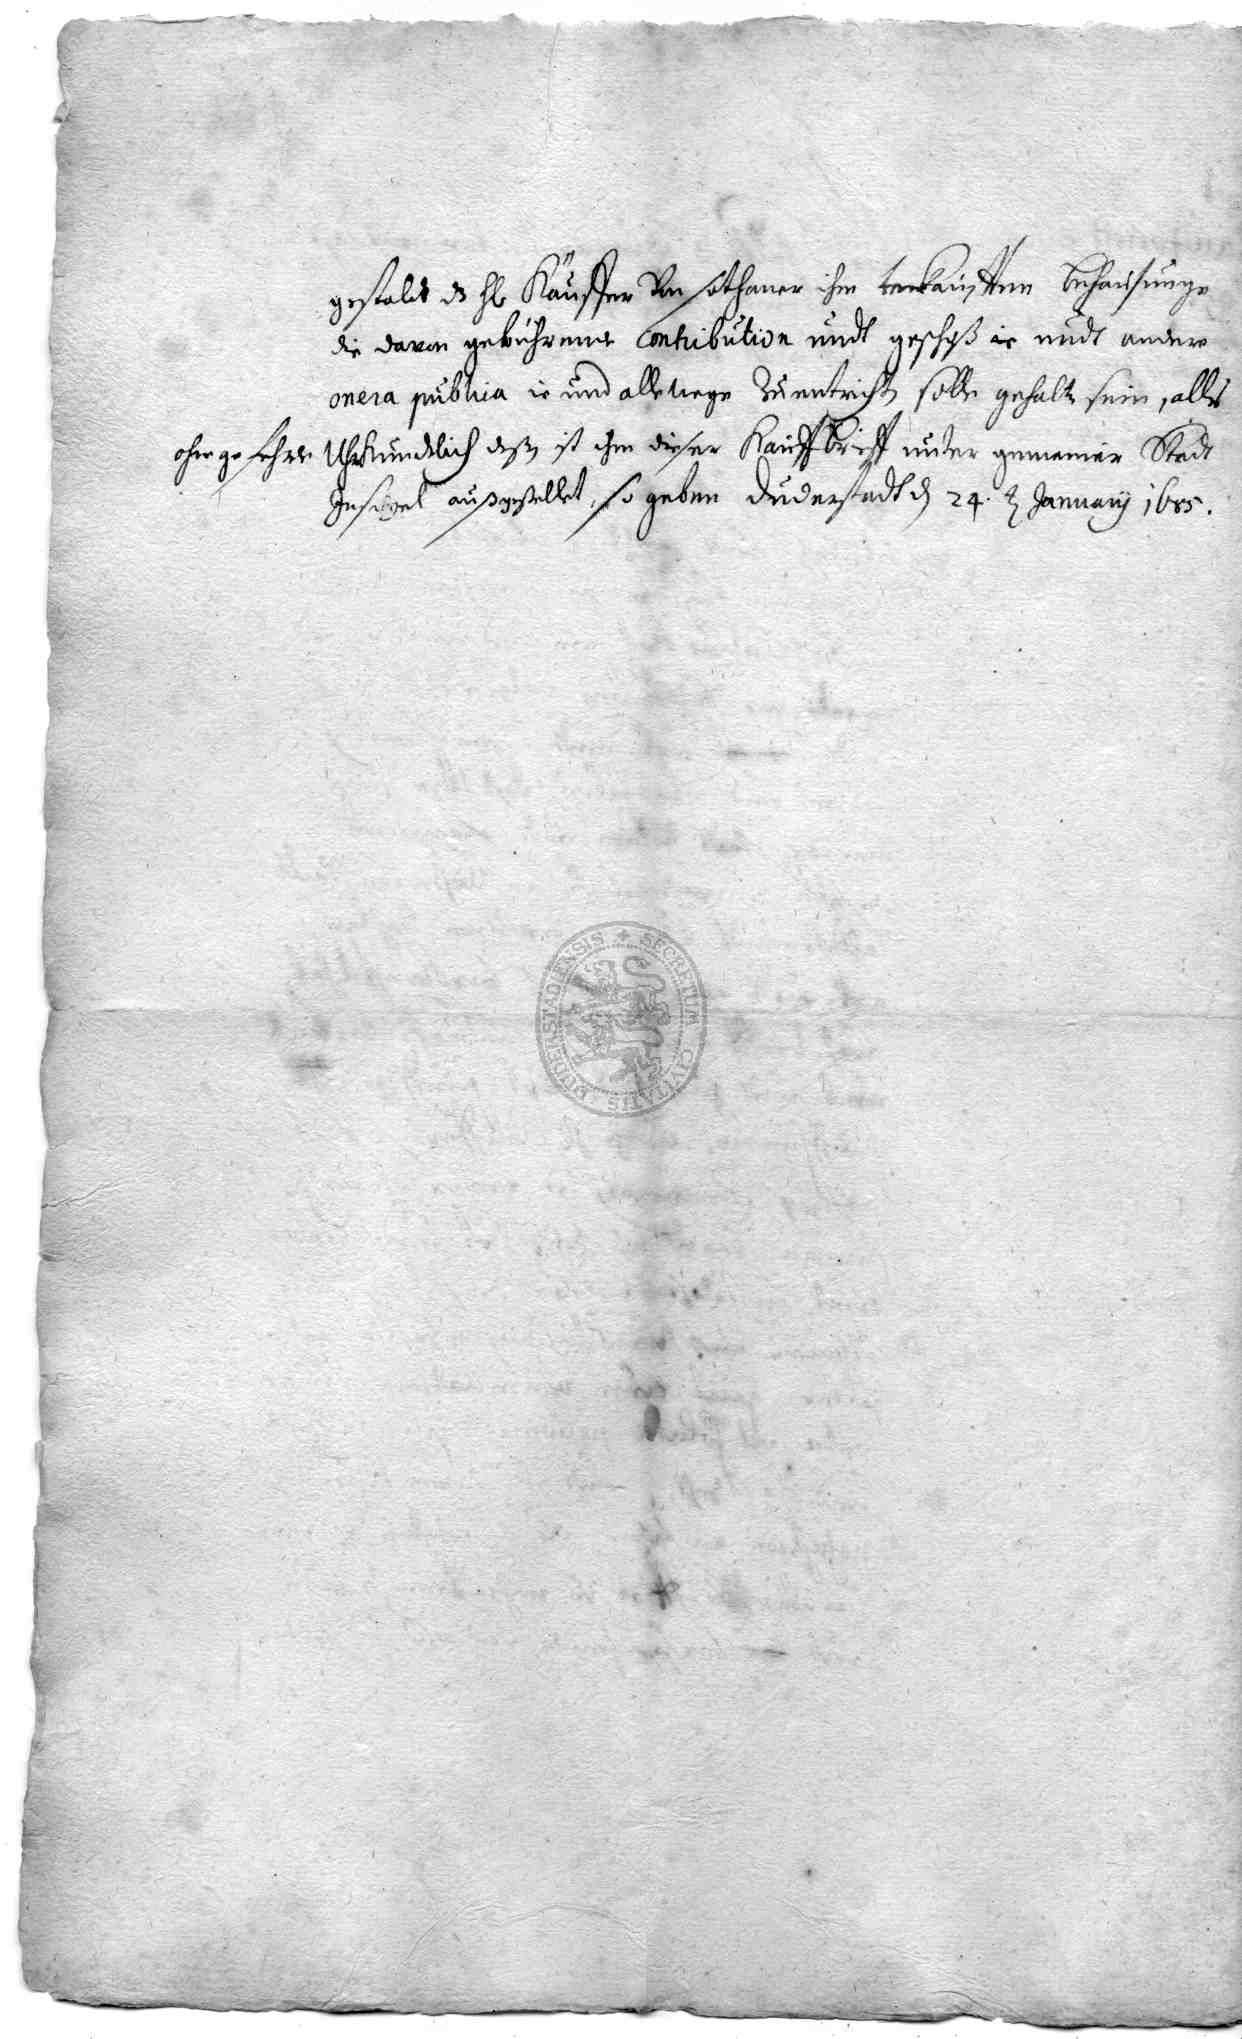 gestalt d. H. Käuffer von sothaner ihm verkaufften behausunge
die davon gebührende Contribution undt geschoß ie undt andere
onera publica ie und allewege zu entrichten solle gehalten sein, alles
ohne gefehrde Uhrkundtlich deß ist ihm dieser Kauffbrieff unter gemeiner Stadt
Insigel außgestellet, so geben Duderstadt d. 24. January 1685.
SECRETUM CIVITATIS DUDERSTADIENSIS